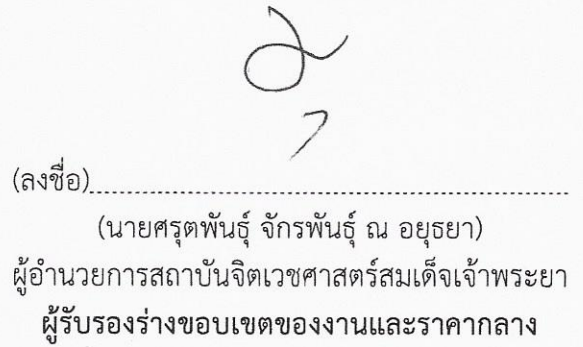 (ลงชื่อ)
(นายศรุตพันธุ์ จักรพันธุ์ ณ อยุธยา)
ผู้อำนวยการสถาบันจิตเวชศาสตร์สมเด็จเจ้าพระยา
ผู้รับรองร่างขอบเขตของงานและราคากลาง